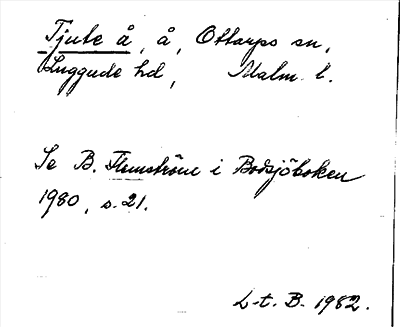 Tjute å, å, Ottarps sn,
Luggude hd, Malm. l.
Se B. Flemström i Bosjöboken
1980, s. 21.
L-t. B. 1982.